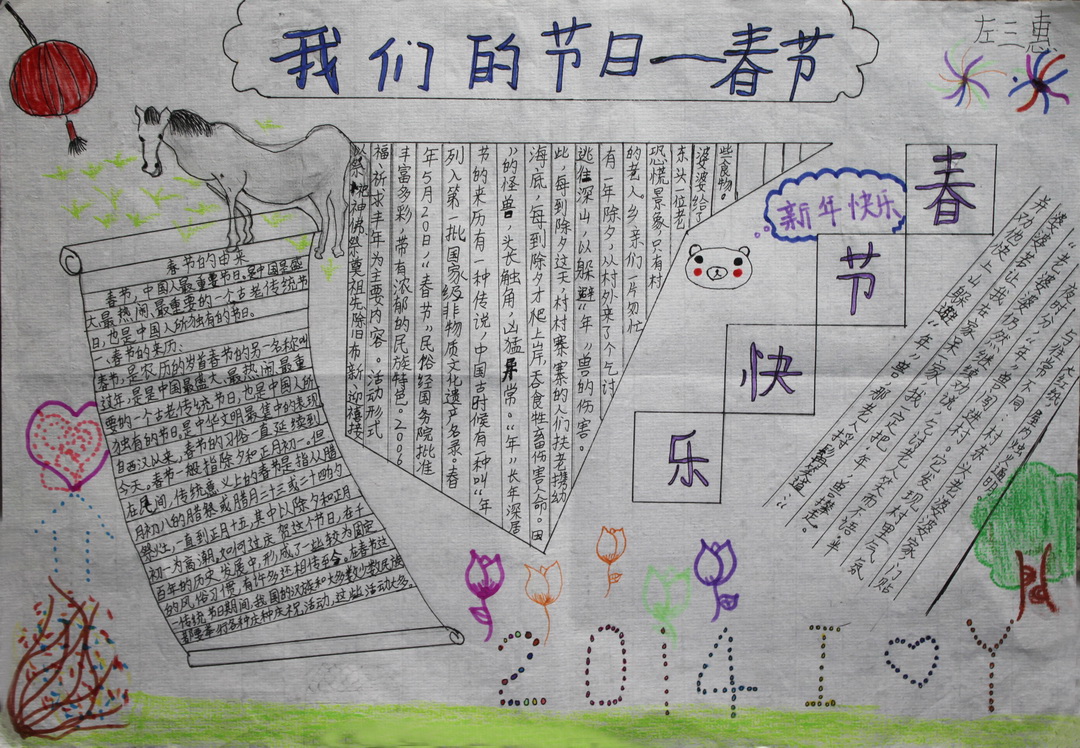 我们的节日—春节
左三惠
春节的由来
春节,中国人最重要节日。是中国最盛
大、最热闹、最重要的一个古老传统节
日,也是中国人所独有的节日。
一、春节的来历:
春节,是农历的岁首春节的另一名称叫
过年,是是中国最盛大、最热闹、最重
要的一个古老传统节日,也是中国人所
独有的节日。是中华文明最集中的表现
自西汉以来,春节的习俗一直延续到
今天。春节一般指除夕和正月初一。但
在民间,传统意义上的春节是指从腊
月初八的腊祭或腊月二十三或二十四的
祭灶,一直到正月十五,其中以除夕和正月
初一为高潮。如何过庆贺这个节日,在千
百年的历史发展中,形成了一些较为固定
的风俗习惯,有许多还相传至今。在春节这
一传统节日期间,我国的汉族和大多数少数民族
都要举行各种庆祝活动,这些活动大多
以祭祝神佛祭奠祖先除旧布新迎禧接
福、祈求丰年为主要内容。活动形式
丰富多彩,带有浓郁的民族特色。2006
年5月20日,“春节”民俗经国务院批准
列入第一批国家级非物质文化遗产名录。春
节的来历有一种传说,中国古时候有一种叫“年
”的怪兽,头长触角,凶猛异常。“年”长年深居
海底,每到除夕才爬上岸,吞食牲畜伤害人命。因
此,每到除夕这天,村村寨寨的人们扶老携幼
逃往深山,以躲避“年”兽的伤害。
有一年除夕,从村外来了个乞讨
的老人,乡亲们一片匆忙
恐慌景象,只有村
东头一位老
婆婆给了
些食物。
并劝他快上山躲避“年”兽,那老人捋髯笑道:“
婆婆若让我在家呆一夜,我定把“年”兽撵走。
”老婆婆仍然继续劝说,乞讨老人笑而不语。半
夜时分,“年”兽闯进村。它发现村里气氛
与往常不同:村东头老婆婆家,门贴
大红纸,屋内烛火通明。
新年快乐
春
节
快
乐
2014 I ♡ Y